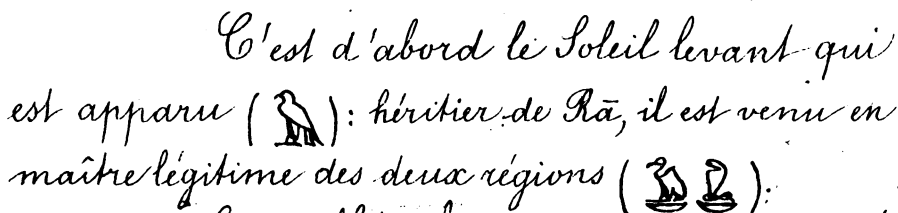 C'est d'abord le Soleil levant qui
est apparu (𓅃): héritier de Rā, il est venu en
maître légitime des deux régions (𓅒):